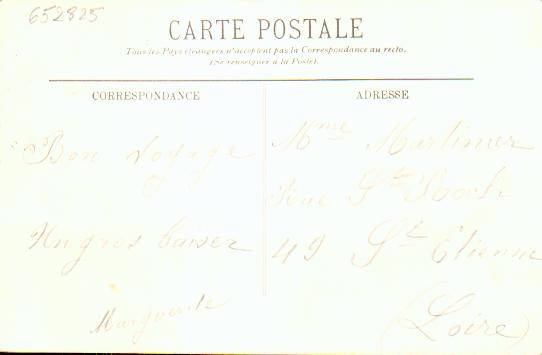 652825
CARTE POSTALE
Tous les Pays étrangers n'acceptent pas la Correspondance au recto.
(Se renseigner à la Poste).
CORRESPONDANCE
Bon voyage
Un gros baiser
Marguerite
ADRESSE
Mme Martinier
Rue St Roch
49 St Etienne
(Loire)